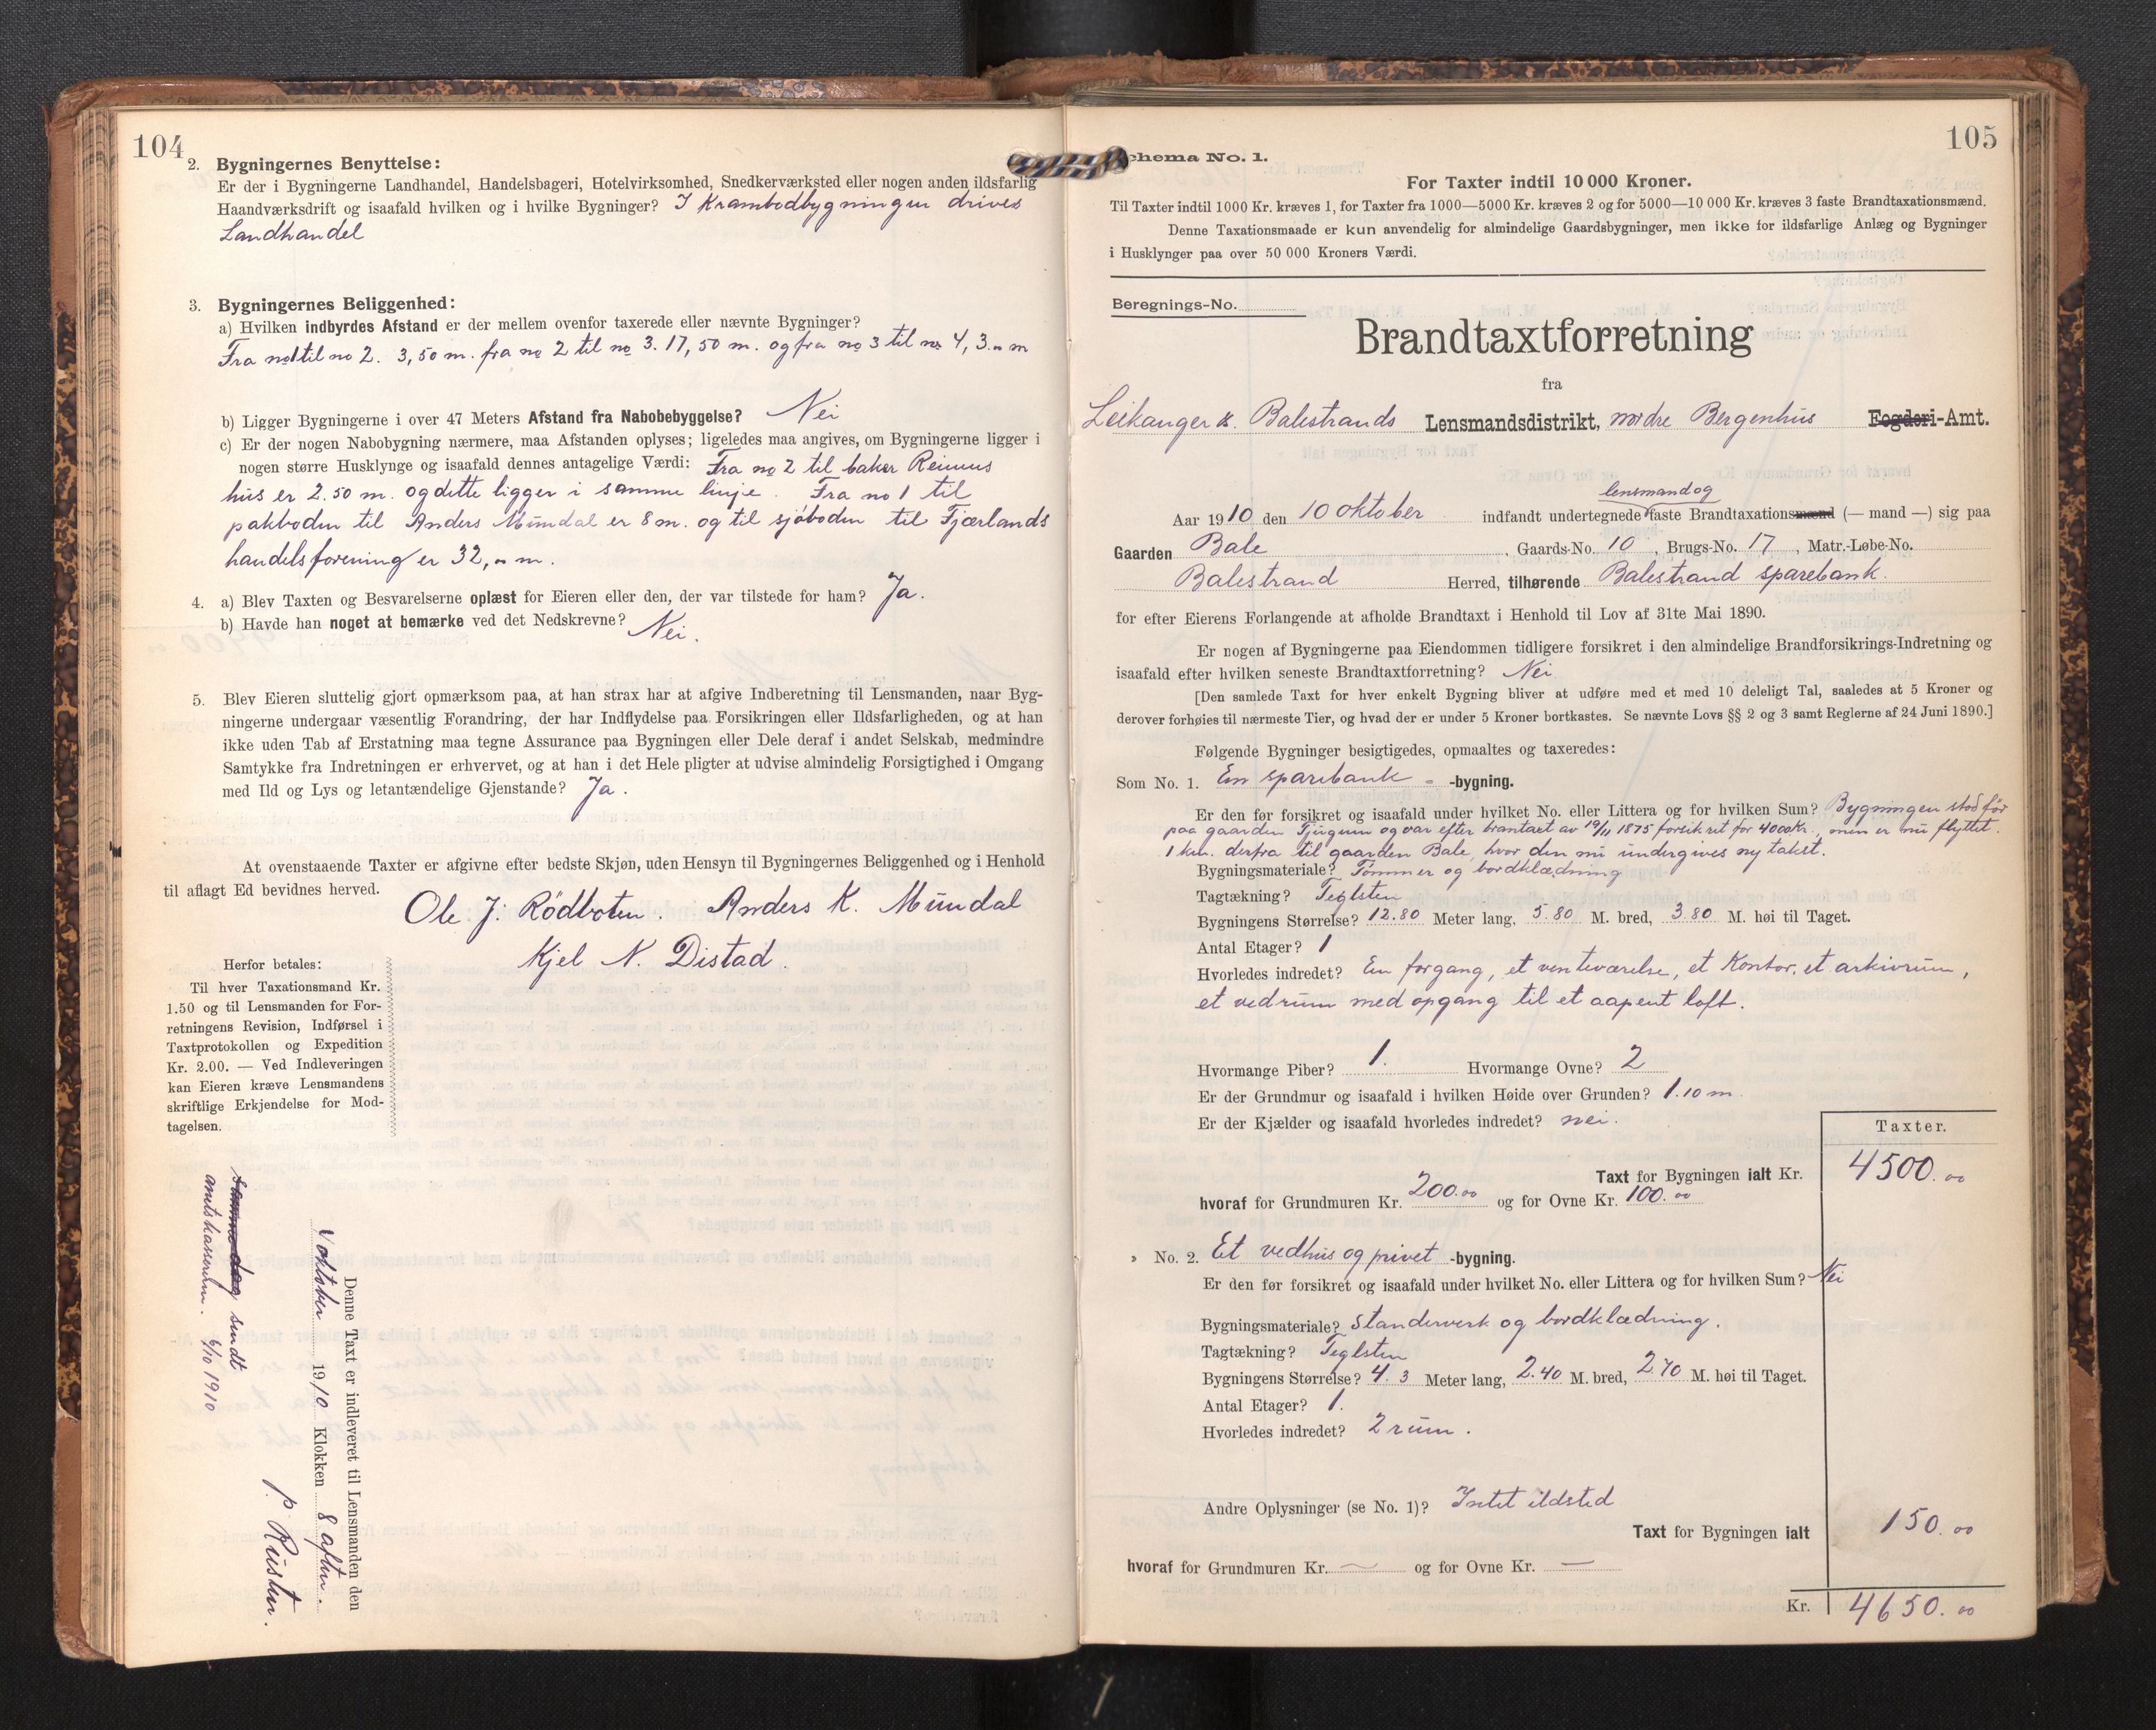 104
2. Bygningernes Benyttelse:
Er der i Bygningerne Landhandel, Handelsbageri, Hotelvirksomhed, Snedkerværksted eller nogen anden ildsfarlig
Haandværksdrift og isaafald hvilken og i hvilke Bygninger? I Krambodbygningen drives
Landhandel
3. Bygningernes Beliggenhed:
a) Hvilken indbyrdes Afstand er der mellem ovenfor taxerede eller nævnte Bygninger?
Fra no 1 til no 2. 3,50 m. fra no 2 til no 3. 17,50 m. og fra no 3 til no 4, 3.„ m
b) Ligger Bygningerne i over 47 Meters Afstand fra Nabobebyggelse? Nei
c) Er der nogen Nabobygning nærmere, maa Afstanden oplyses; ligeledes maa angives, om Bygningerne ligger i
nogen større Husklynge og isaafald dennes antagelige Værdi: Fra no 2 til baker Reimus
hus er 2.50 m. og dette ligger i samme linje. Fra no 1 til
pakboden til Anders Mundal er 8 m. og til sjøboden til Fjærlands
handelsforening er 32,„ m.
4. a) Blev Taxten og Besvarelserne oplæst for Eieren eller den, der var tilstede for ham? Ja.
b) Havde han noget at bemærke ved det Nedskrevne? Nei.
5. Blev Eieren sluttelig gjort opmærksom paa, at han strax har at afgive Indberetning til Lensmanden, naar Byg-
ningerne undergaar væsentlig Forandring, der har Indflydelse paa Forsikringen eller Ildsfarligheden, og at han
ikke uden Tab af Erstatning maa tegne Assurance paa Bygningen eller Dele deraf i andet Selskab, medmindre
Samtykke fra Indretningen er erhvervet, og at han i det Hele pligter at udvise almindelig Forsigtighed i Omgang
med Ild og Lys og letantændelige Gjenstande? Ja.
At ovenstaaende Taxter er afgivne efter bedste Skjøn, uden Hensyn til Bygningernes Beliggenhed og i Henhold
til aflagt Ed bevidnes herved.
Ole J. Rødboten. Anders K. Mundal
Kjel N. Distad.
Herfor betales:
Til hver Taxationsmand Kr.
1.50 og til Lensmanden for For-
retningens Revision, Indførsel i
Taxtprotokollen og Expedition
Kr. 2.00. — Ved Indleveringen
kan Eieren kræve Lensmandens
skriftlige Erkjendelse for Mod-
tagelsen.
Denne Taxt er indleveret til Lensmanden den
1 oktober 1910 Klokken 8 aften.
p. Riisten.
samme dag sendt
amtskassereren. 6/10 1910
105
Schema No. 1.
For Taxter indtil 10 000 Kroner.
Til Taxter indtil 1000 Kr. kræves 1, for Taxter fra 1000—5000 Kr. kræves 2 og for 5000—10 000 Kr. kræves 3 faste Brandtaxationsmænd.
Denne Taxationsmaade er kun anvendelig for almindelige Gaardsbygninger, men ikke for ildsfarlige Anlæg og Bygninger
i Husklynger paa over 50 000 Kroners Værdi.
Beregnings-No.
Brandtaxtforretning
fra
Leikanger & Balestrands Lensmandsdistrikt, nordre Bergenhus Fogderi-Amt.
lensmand og
Aar 1910 den 10 oktober indfandt undertegnede faste Brandtaxationsmænd (— mand —) sig paa
Gaarden Bale, Gaards-No. 10, Brugs-No. 17, Matr.-Løbe-No.
Balestrand Herred, tilhørende Balestrand sparebank.
for efter Eierens Forlangende at afholde Brandtaxt i Henhold til Lov af 31te Mai 1890.
Er nogen af Bygningerne paa Eiendommen tidligere forsikret i den almindelige Brandforsikrings-Indretning og
isaafald efter hvilken seneste Brandtaxtforretning? Nei
[Den samlede Taxt for hver enkelt Bygning bliver at udføre med et med 10 deleligt Tal, saaledes at 5 Kroner og
derover forhøies til nærmeste Tier, og hvad der er under 5 Kroner bortkastes. Se nævnte Lovs §§ 2 og 3 samt Reglerne af 24 Juni 1890.]
Følgende Bygninger besigtigedes, opmaaltes og taxeredes:
Som No. 1. En sparebank -bygning.
Er den før forsikret og isaafald under hvilket No. eller Littera og for hvilken Sum? Bygningen stod før
paa gaarden Tjugum og var efter brantaxt av 19/11 1875 forsikret for 4000 Kr., men er nu flyttet
1 km. derfra til gaarden Bale, hvor den nu undergives ny takst.
Bygningsmateriale? Tømmer og bordklædning
Tagtækning? Teglsten
Bygningens Størrelse? 12.80 Meter lang, 5.80 M. bred, 3.80 M. høi til Taget.
Antal Etager? 1
Hvorledes indredet? En forgang, et venteværelse, et Kontor, et arkivrum,
et vedrum med opgang til et aapent loft.
Hvormange Piber? 1. Hvormange Ovne? 2
Er der Grundmur og isaafald i hvilken Høide over Grunden? 1.10 m.
Er der Kjælder og isaafald hvorledes indredet? nei.
Taxter.
Taxt for Bygningen ialt Kr. 4500.00
hvoraf for Grundmuren Kr. 200.00 og for Ovne Kr. 100.00
» No. 2. Et vedhus og privet -bygning.
Er den før forsikret og isaafald under hvilket No. eller Littera og for hvilken Sum? Nei
Bygningsmateriale? Standerverk og bordklædning.
Tagtækning? Teglsten
Bygningens Størrelse? 4.3 Meter lang, 2.40 M. bred, 2.70 M. høi til Taget.
Antal Etager? 1.
Hvorledes indredet? 2 rum.
Andre Oplysninger (se No. 1)? Intet ildsted
Taxt for Bygningen ialt 150.00
hvoraf for Grundmuren Kr. — og for Ovne Kr. —
Kr. 4650.00